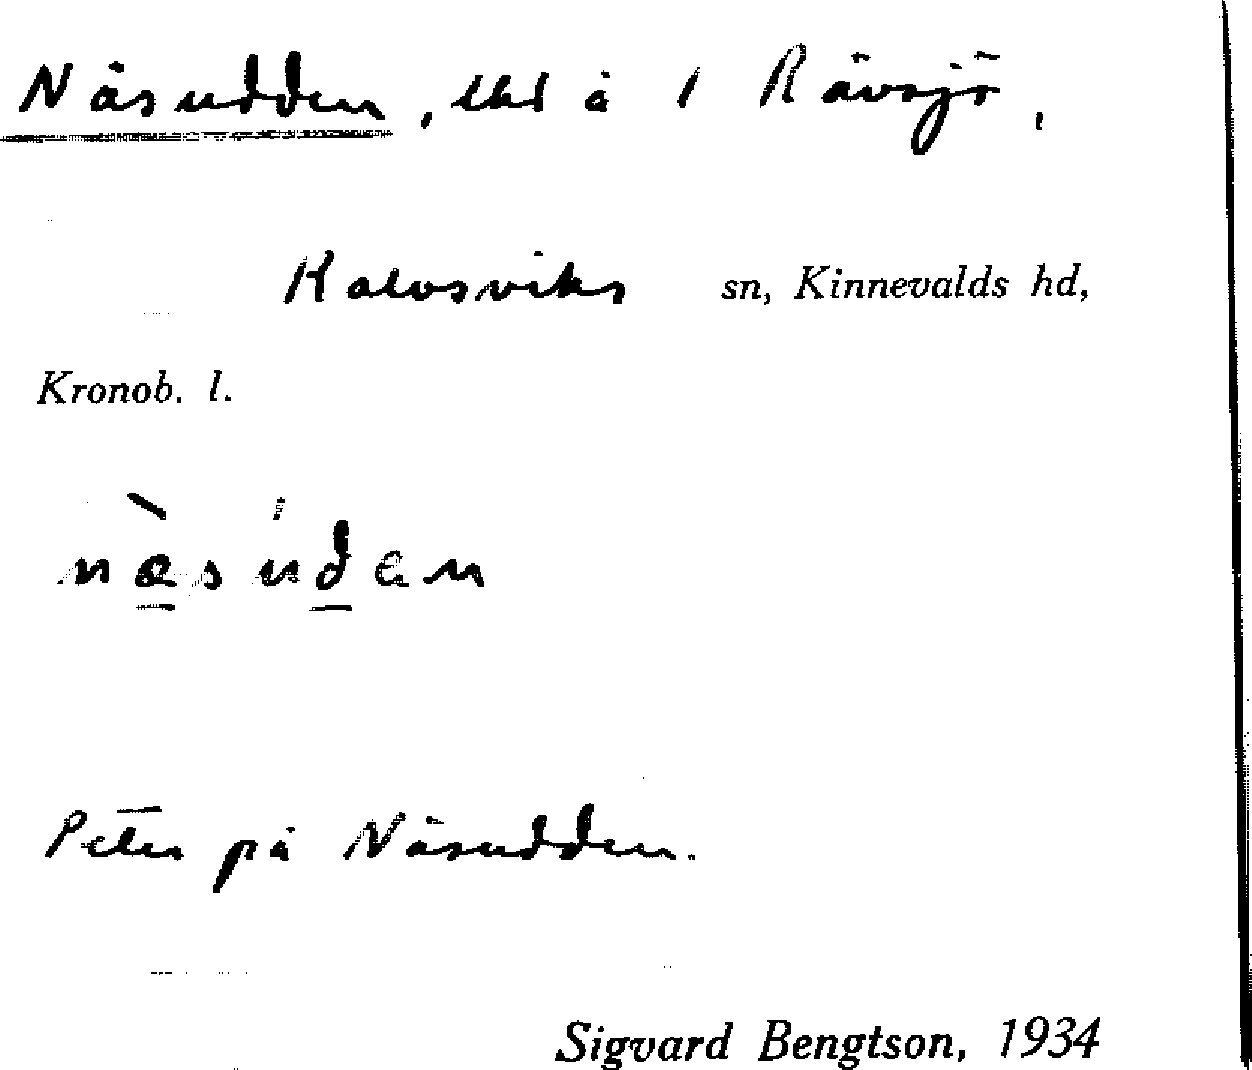 Näsudden, lht å 1 Rävsjö,
Kalvsviks sn, Kinnevalds hd,
Kronob. l.
næ̀súden
Peter på Näsudden.
Sigvard Bengtson, 1934